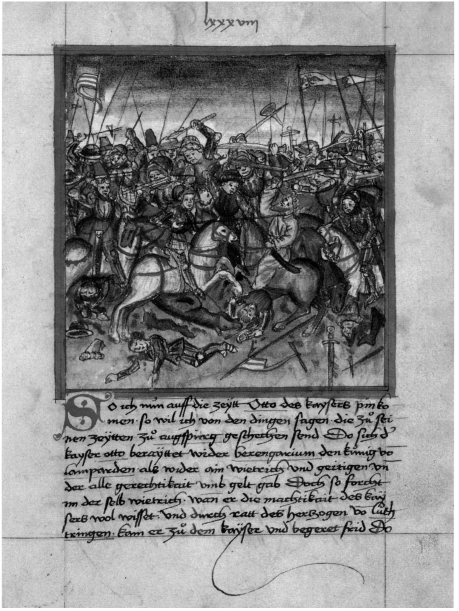 lxxxviij
So ich nun auff die zeytt Otto des kaysers pin ko
men · so wil ich von den dingen sagen · die zů sei
nen zeytten zů augspurg geschechen send Do sich d'
kayser otto berayttet wider berengarium den künig vo
lamparden als wider ain wietrich vnd gertigen vn
der alle gerechtikait vmb gelt gab Doch so forcht
im der selb wietrich · wan er die machtikait des kay
sers wol wisset · vnd durch ratt des herczogen vo luth
tringen · kam er zů dem kayser vnd begeret frid Do